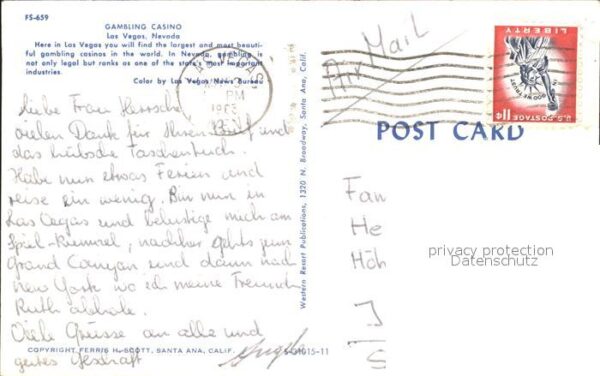 FS-659
GAMBLING CASINO
Las Vegas, Nevada
Here in Las Vegas you will find the largest and most beauti-
ful gambling casinos in the world. In Nevada, gambling is
not only legal but ranks as one of the state's most important
industries.
Color by Las Vegas News Bureau
Liebe Frau
vielen Dank für Ihren Brief und
das hübsche Taschentuch.
Habe nun etwas Ferien und
reise ein wenig. Bin nun in
Las Vegas und belustige mich am
Spiel-Rummel, nachher gehts zum
Grand Canyon und dann nach
New York wo ich meine Freundin
Ruth abhole.
Viele Grüsse an alle und
gutes Geschäft
COPYRIGHT FERRIS H. SCOTT, SANTA ANA, CALIF.
S-31015-11
Western Resort Publications, 1320 N. Broadway, Santa Ana, Calif.
VEGAS
PM
Air Mail
LIBERTY
U.S. POSTAGE
11¢
POST CARD
Fam
He
Höh
privacy protection
Datenschutz